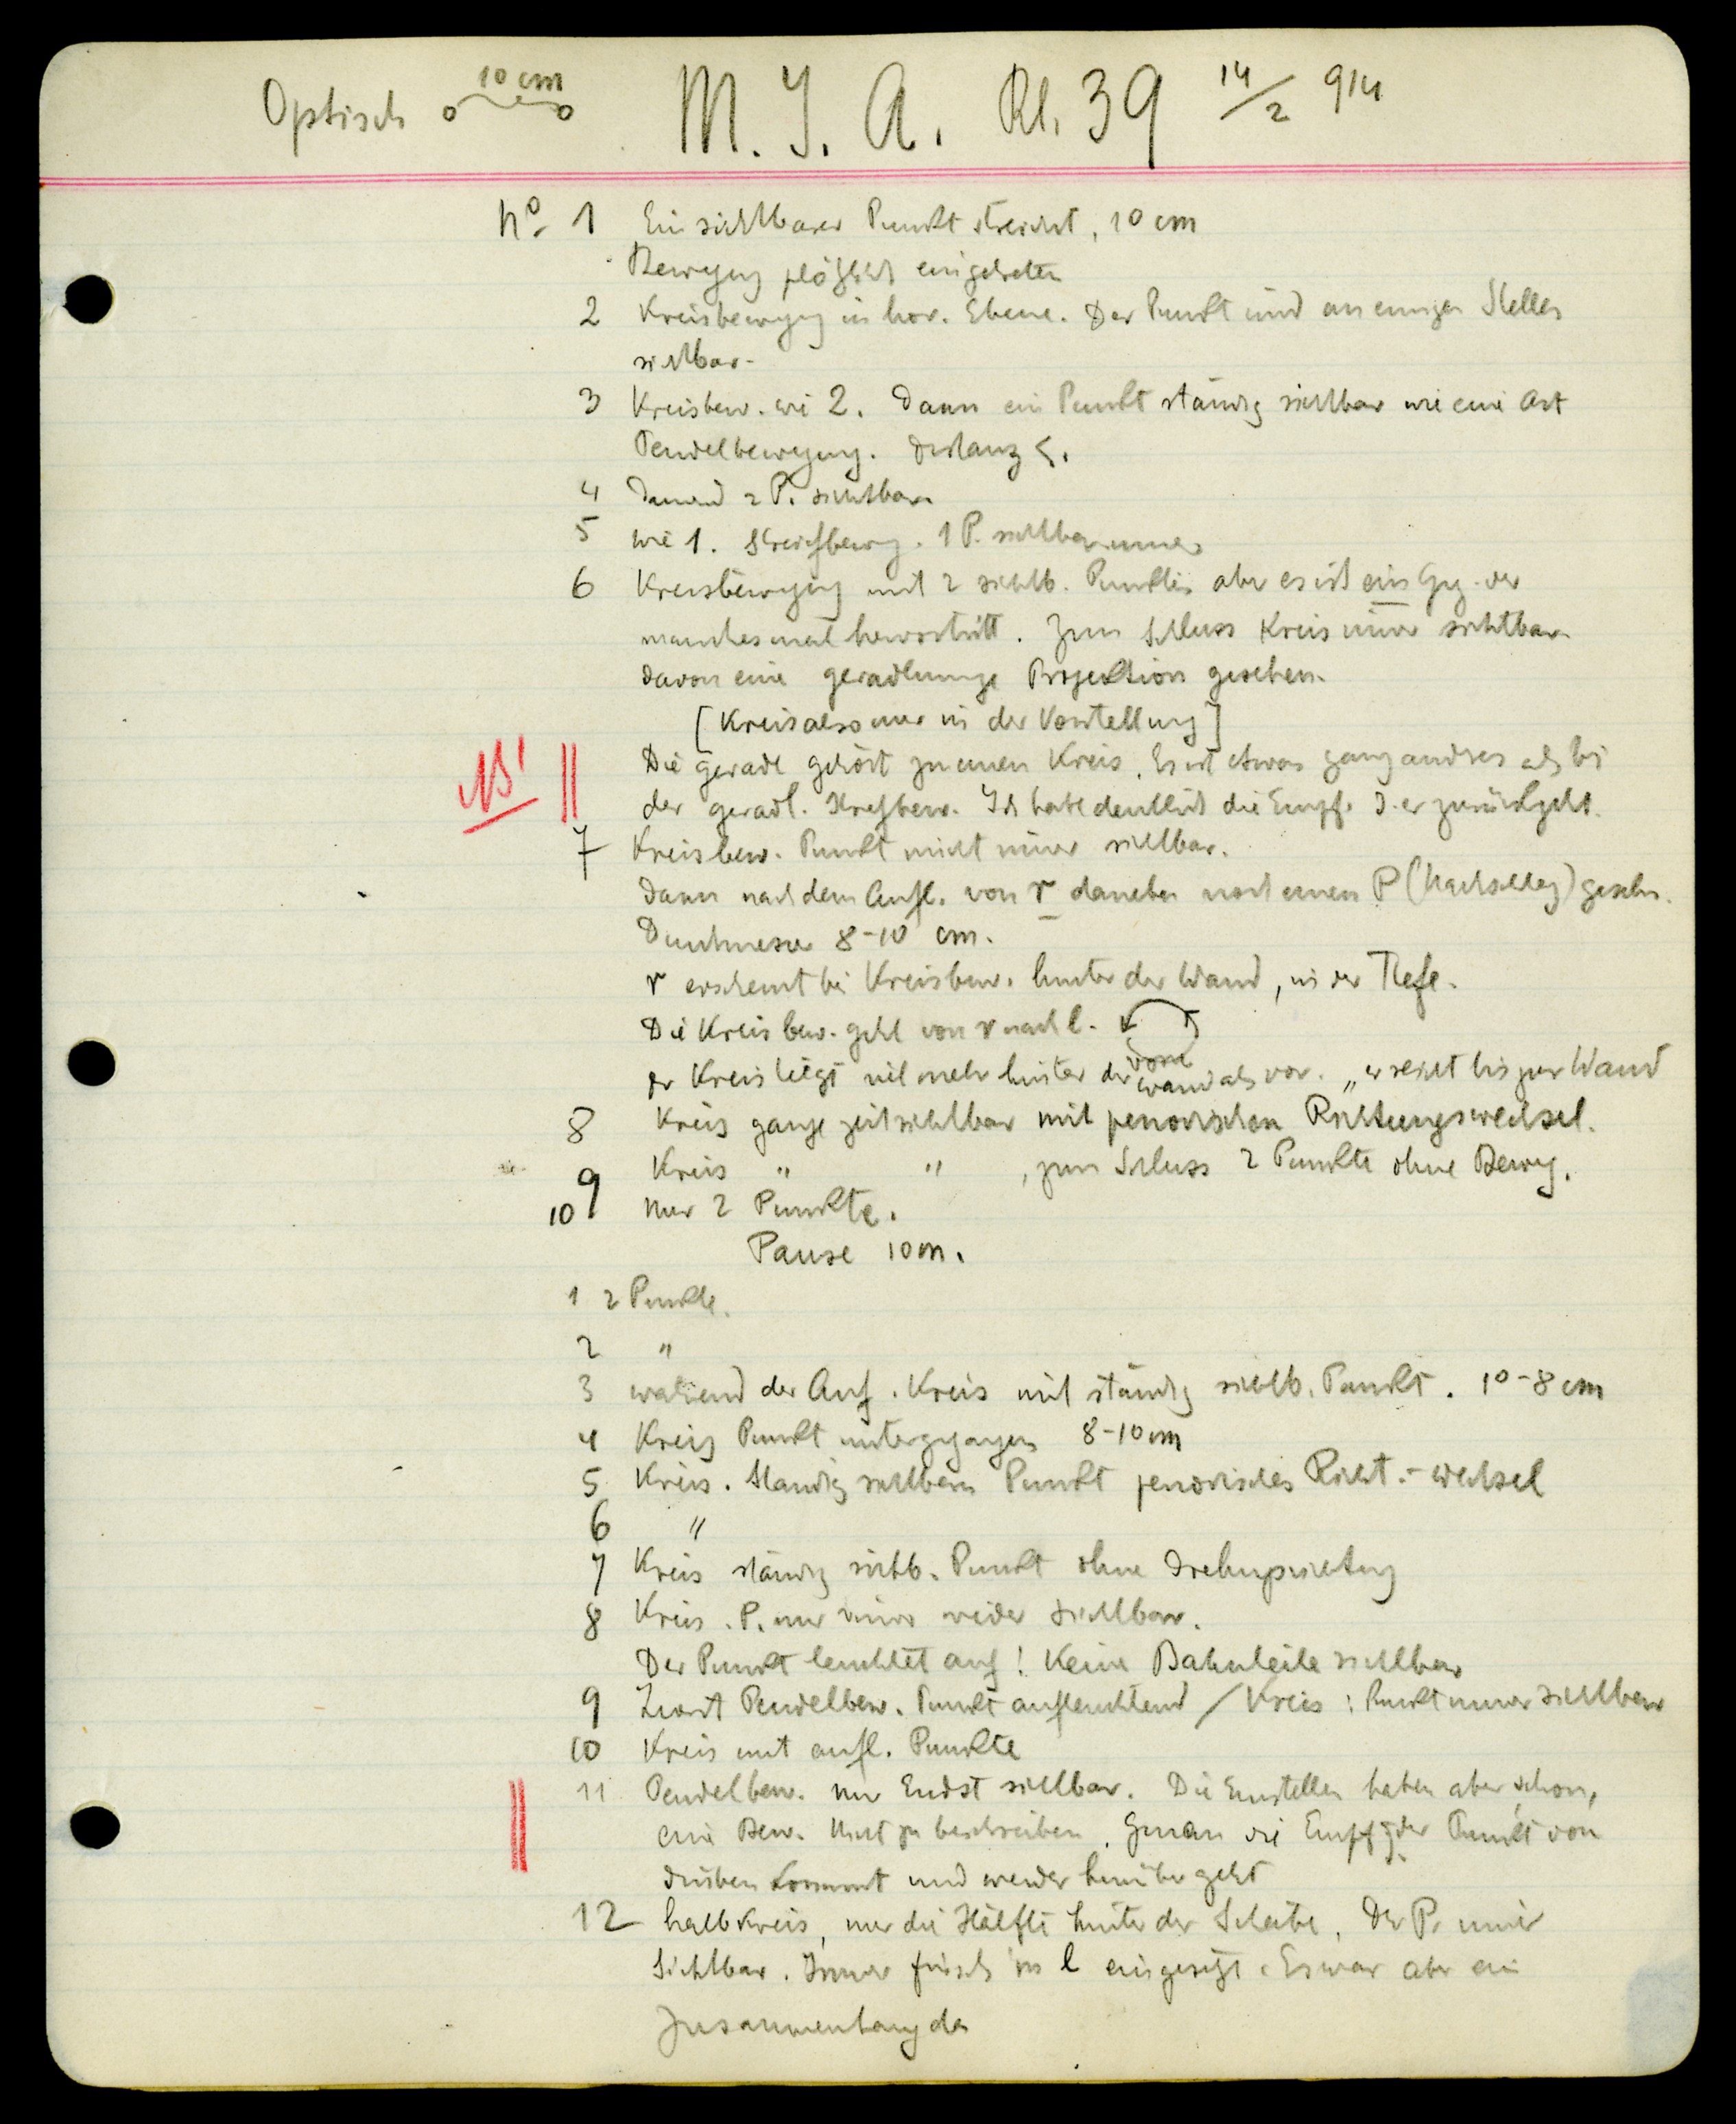 Optisch 10 cm M. J. A. Kl. 39 14/2 914
No. 1 Ein sichtbarer Punkt streicht, 10 cm
Bewegung plötzlich eingetreten
2 Kreisbewegung in hor. Ebene. Der Punkt wird an einigen Stellen
sichtbar.
3 Kreisbew. wie 2. Dann ein Punkt ständig sichtbar wie eine Art
Pendelbewegung. Distanz <.
4 Dauernd 2 P. sichtbar.
5 wie 1. Streichbeweg. 1 P. sichtbar immer
6 Kreisbewegung mit 2 sichtb. Punkten aber es ist ein Ggz. der
manchesmal hervortritt. Zum Schluss Kreis immer sichtbar
davon eine geradlinige Projektion gesehen.
[Kreis also nur in der Vorstellung]
NB! Die gerade gehört zu einem Kreis. Es ist etwas ganz andres als bei
der geradl. Streichbew. Ich habe deutlich die Empf. d. er zurückgeht.
7 Kreisbew. Punkt nicht immer sichtbar.
Dann nach dem Aufl. von r daneben noch einen P gesehn.
Durchmesser 8-10 cm.
r erscheint bei Kreisbew. hinter der Wand, in der Tiefe.
Die Kreisbew. geht von r nach l. vorne
er Kreis liegt viel mehr hinter der Wand als vor. „er reicht bis zur Wand
8 Kreis ganze Zeit sichtbar mit periodischen Richtungswechsel.
9 Kreis " " , zum Schluss 2 Punkte ohne Beweg.
10 nur 2 Punkte.
Pause 10 m.
1 2 Punkte.
2 "
3 während der Auf. Kreis mit ständig sichtb. Punkt. 10-8 cm
4 Kreis Punkt untergegangen 8-10 cm
5 Kreis. Ständig sichtbarer Punkt periodisches Richt.-wechsel
6 "
7 Kreis ständig sichtb. Punkt ohne Drehungsrichtung
8 Kreis. P. nur wieder sichtbar.
Der Punkt leuchtet auf! Keine Bahnteile sichtbar
9 Zuerst Pendelbew. Punkt aufleuchtend / Kreis: Punkt immer sichtbar
10 Kreis mit aufl. Punkte
11 Pendelbew. nur Endst sichtbar. Die Endstellen haben aber schon,
eine Bew. Nicht zu beschreiben. Genau die Empf. d. der Punkt von
drüben kommt und wieder hinüber geht
12 halbkreis, nur die Hälfte hinter der Scheibe. Der P. immer
Sichtbar. Immer frisch in l eingesetzt. Es war aber ein
Zusammenhang da